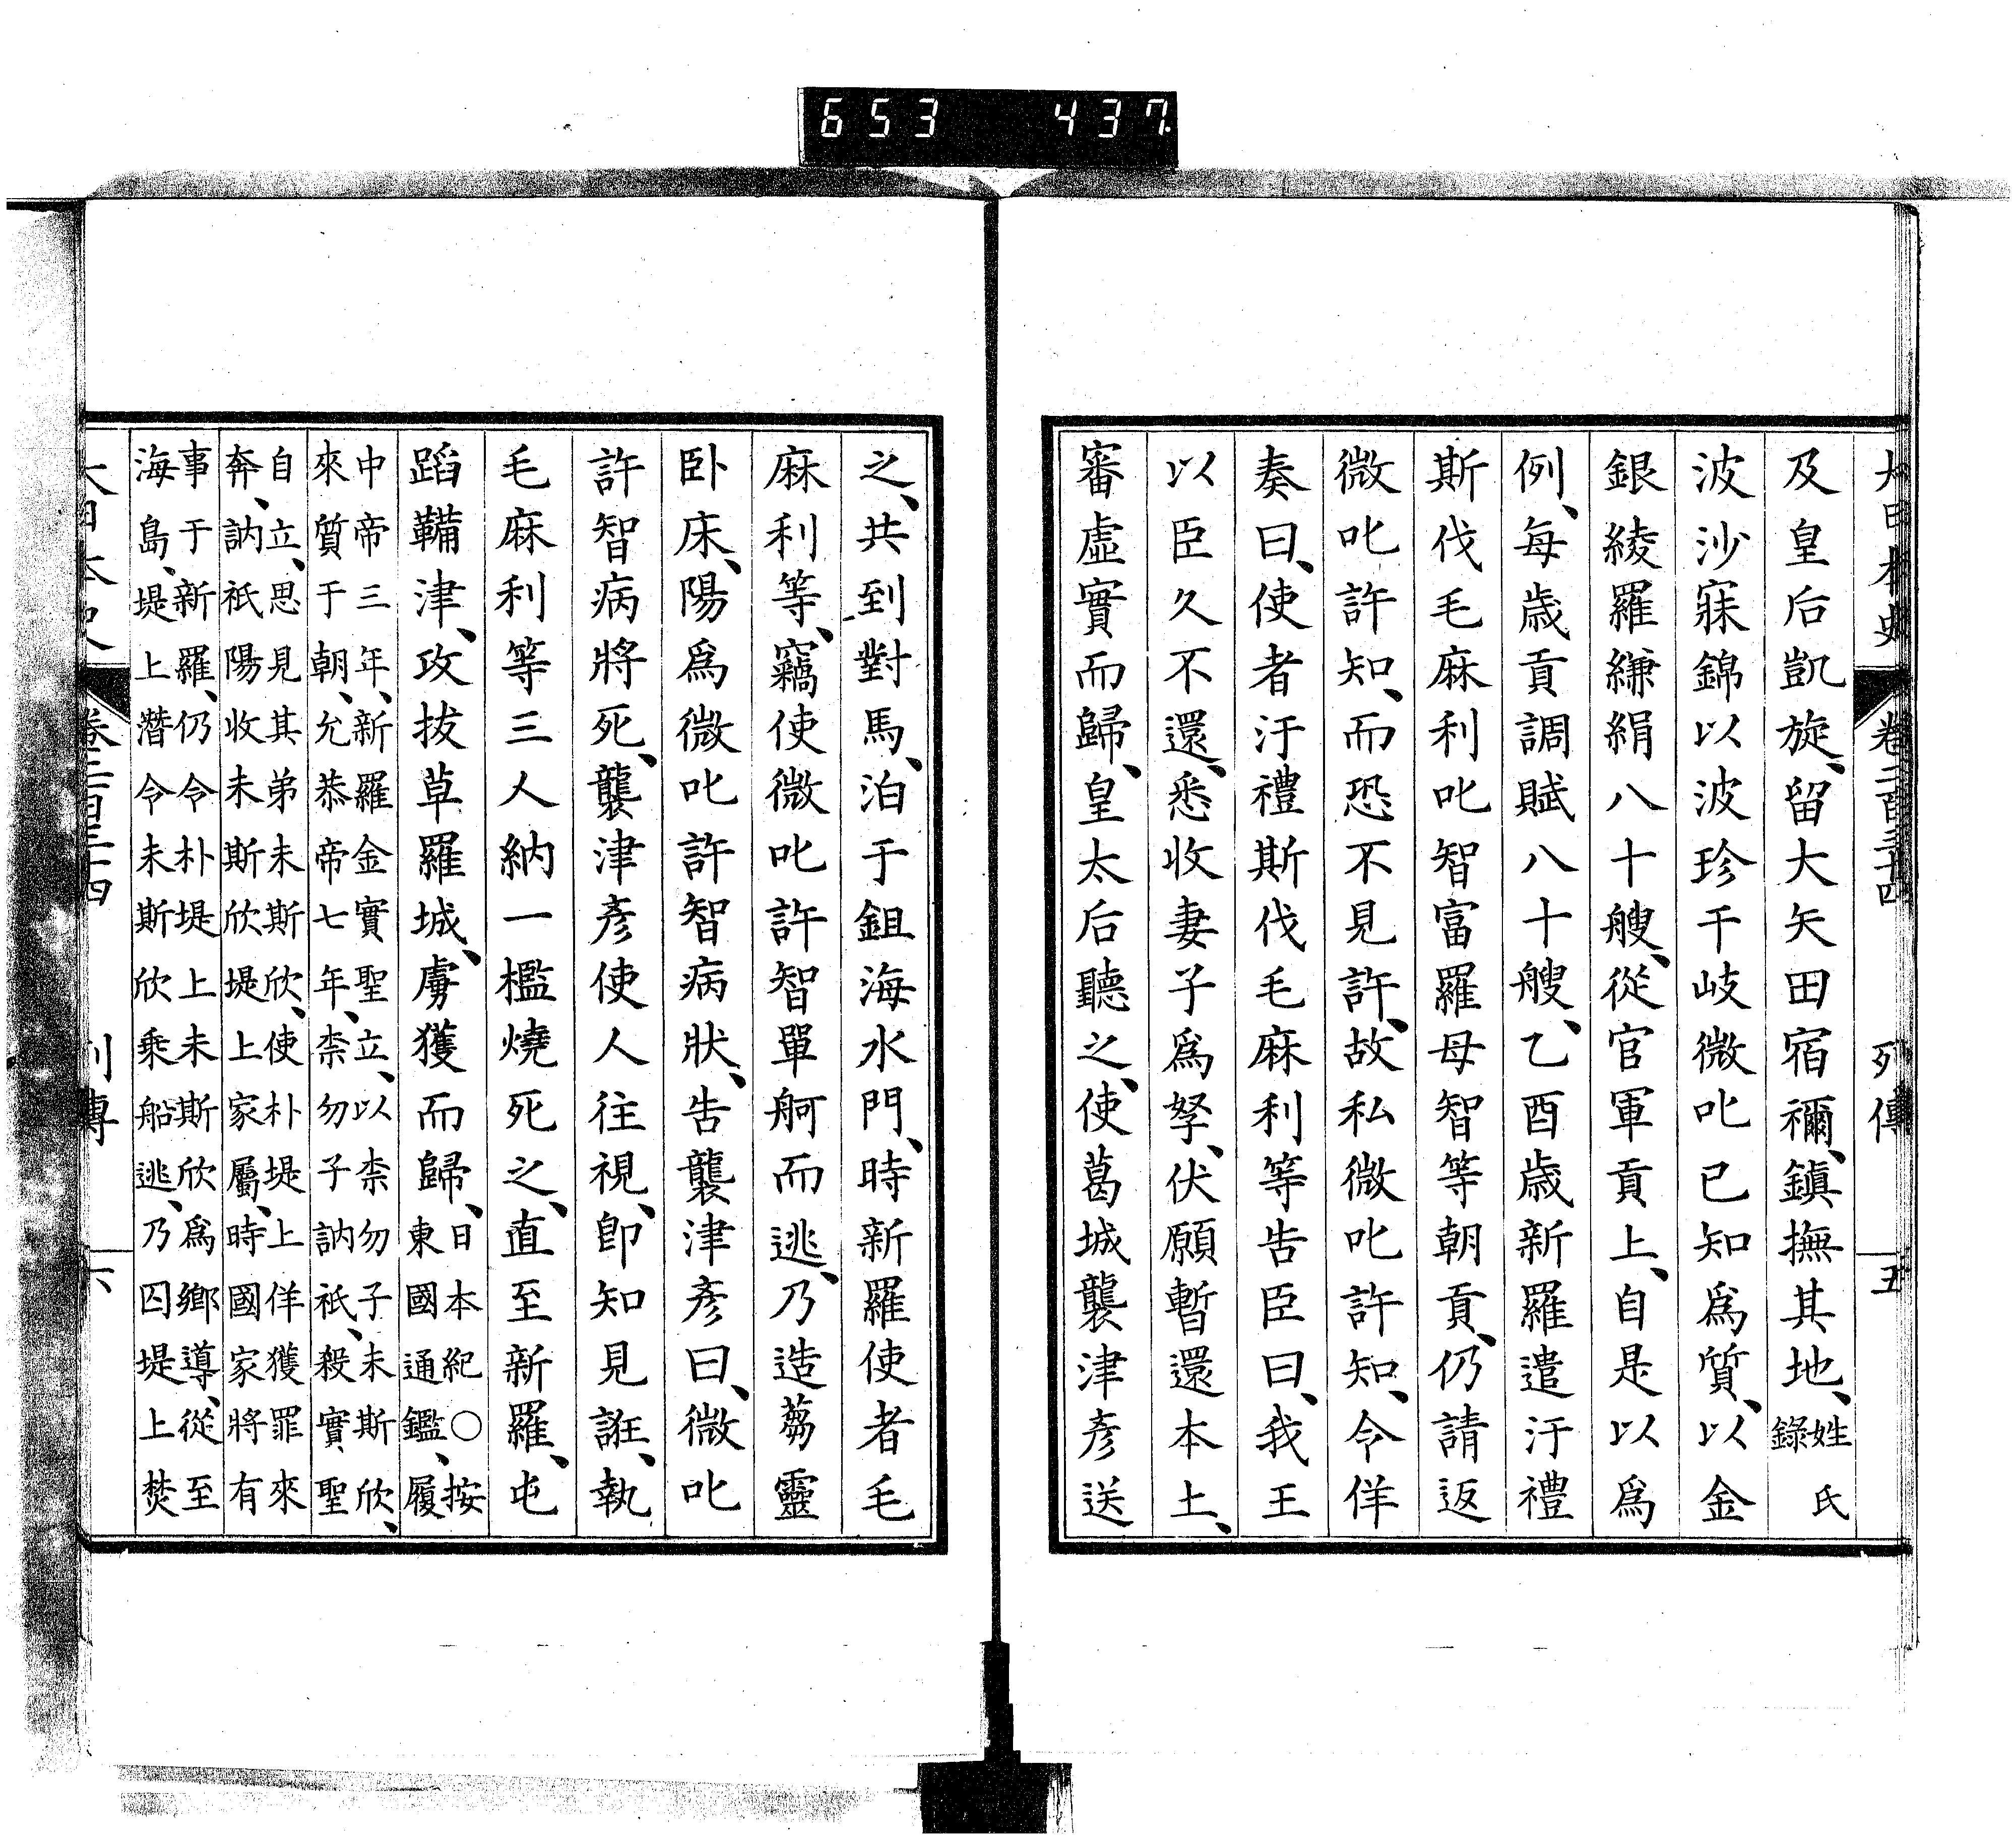 653 437
大日本史 卷二百三十四 列傳 五
及皇后凱旋、留大矢田宿禰、鎭撫其地、姓氏
錄
波沙寐錦以波珍干岐微叱已知爲質、以金
銀綾羅縑絹八十艘、從官軍貢上、自是以爲
例、每歲貢調賦八十艘、乙酉歲新羅遣汙禮
斯伐毛麻利叱智富羅母智等朝貢、仍請返
微叱許知、而恐不見許、故私微叱許知、令佯
奏曰、使者汙禮斯伐毛麻利等告臣曰、我王
以臣久不還、悉收妻子爲孥、伏願暫還本土、
審虛實而歸、皇太后聽之、使葛城襲津彥送
之、共到對馬、泊于鉏海水門、時新羅使者毛
麻利等、竊使微叱許智單舸而逃、乃造蒭靈
臥床、陽爲微叱許智病狀、告襲津彥曰、微叱
許智病將死、襲津彥使人往視、卽知見誑、執
毛麻利等三人納一檻燒死之、直至新羅、屯
蹈鞴津、攻拔草羅城、虜獲而歸、日本紀○按
東國通鑑、履
中帝三年、新羅金實聖立、以柰勿子未斯欣、
來質于朝、允恭帝七年、柰勿子訥祇、殺實聖
自立、思見其弟未斯欣、使朴堤上佯獲罪來
奔、訥祇陽收未斯欣堤上家屬、時國家將有
事于新羅、仍令朴堤上未斯欣爲鄉導、從至
海島、堤上潛令未斯欣乘船逃、乃囚堤上焚
大日本史 卷二百三十四 列傳 六